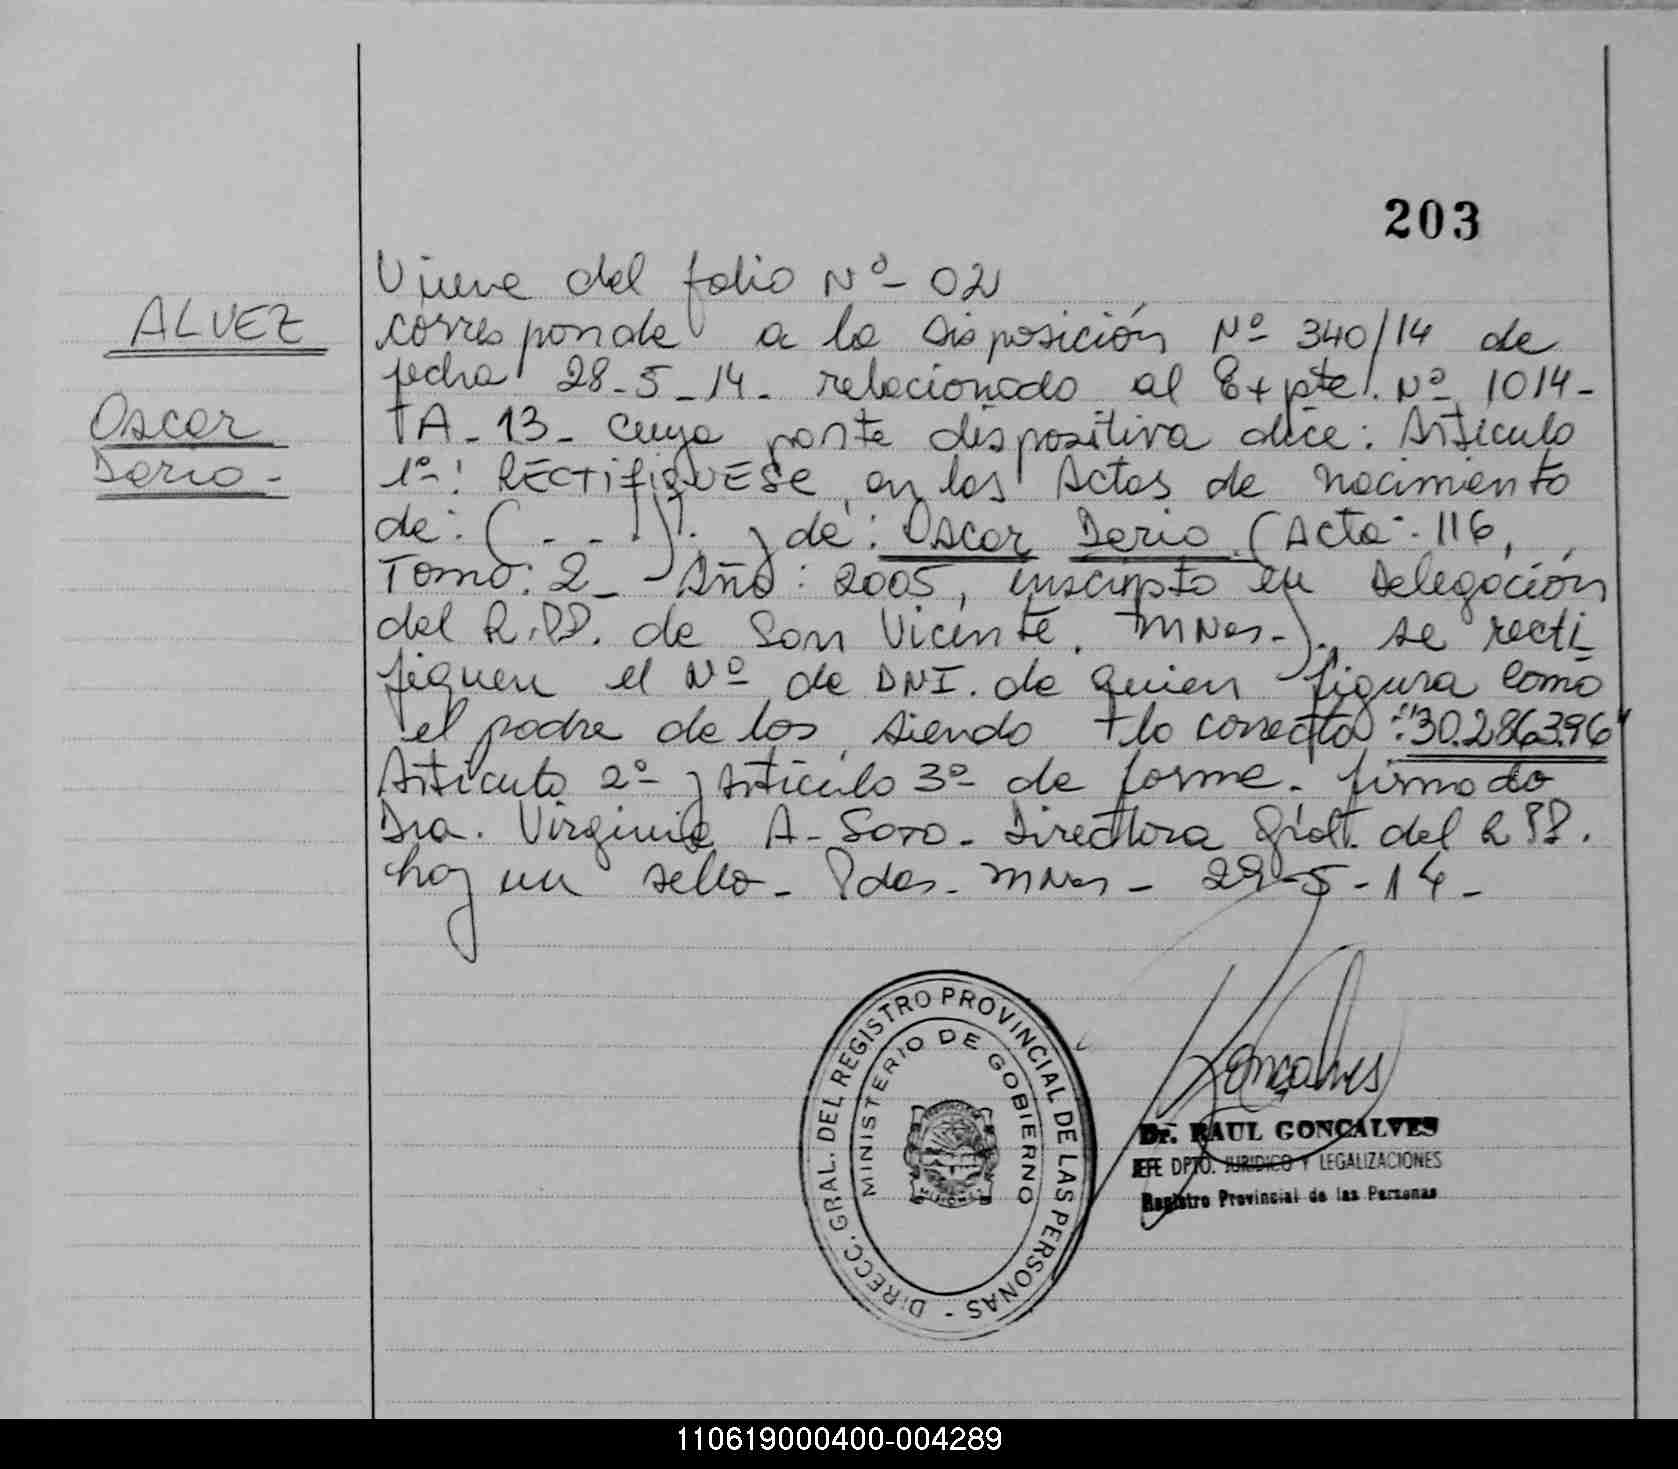 203
ALVEZ
Oscar
Dario -
Viene del folio Nº - 02
corresponde a la Disposición Nº 340/14 de
fecha 28-5-14- relacionado al Expte. Nº 1014-
A-13- cuya parte dispositiva dice: Artículo
1º: RECTIFIQUESE en las Actas de nacimiento
de: (- - -). y de: Oscar Dario (Acta: 116,
Tomo: 2- Año: 2005, inscripto en Delegación
del R.PP. de San Vicente. Mnes-). se recti
fiquen el Nº de DNI. de quien figura como
el padre de los siendo lo correcto: "30.286.396"
Artículo 2º y Artículo 3º de forme. firmado
Dra. Virginia A- Soto- Directora Gral. del R PP.
hay un sello- Pdas- Mnes- 29-5-14-
DIRECC. GRAL. DEL REGISTRO PROVINCIAL DE LAS PERSONAS -
MINISTERIO DE GOBIERNO
MISIONES
Goncalves
Dr. RAUL GONCALVES
JEFE DPTO. JURIDICO Y LEGALIZACIONES
Registro Provincial de las Personas
110619000400-004289